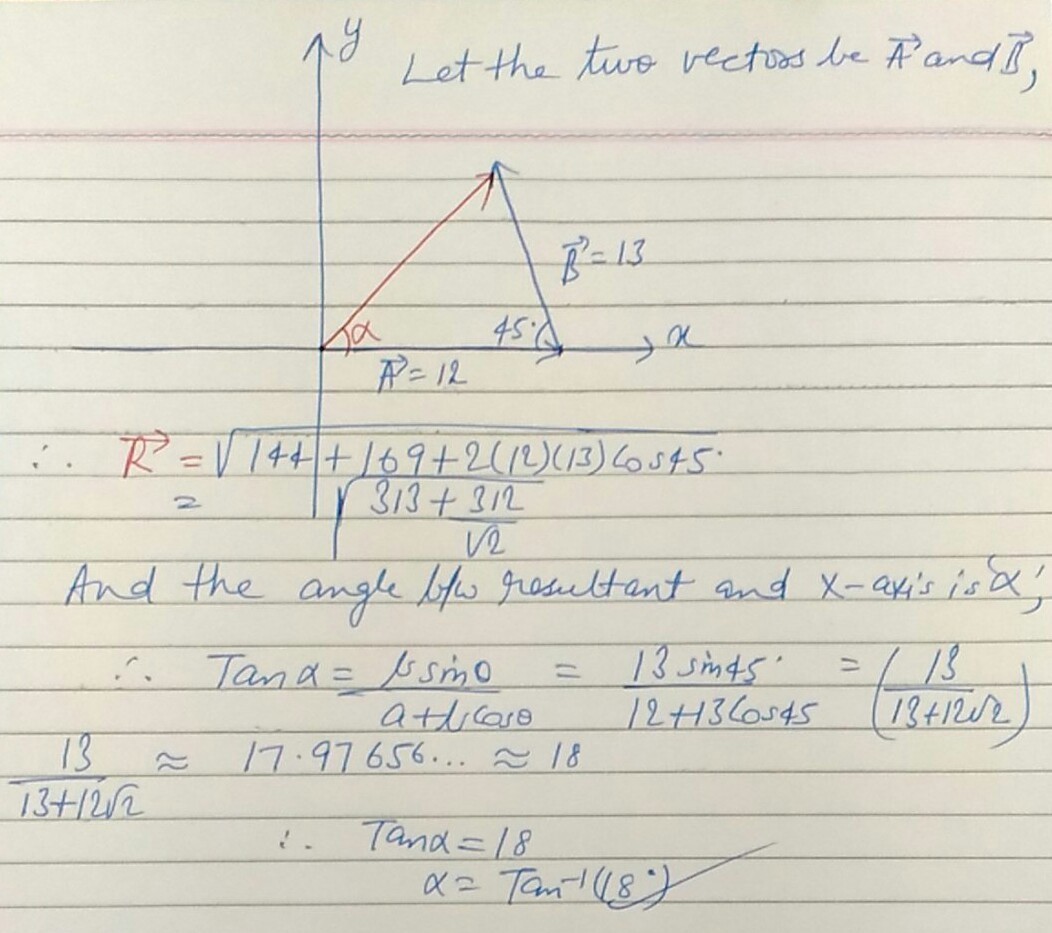 y
Let the two vectors be A⃗ and B⃗,
B⃗ = 13
α
45°
x
A⃗ = 12
∴ R⃗ = √144 + 169 + 2(12)(13) Cos45°
= √313 + 312/√2
And the angle b/w resultant and x-axis is 'α',
∴ Tanα = b sinθ / a + b cosθ = 13 sin45° / 12+13Cos45 = (13 / 13+12√2)
13 / 13+12√2 ≈ 17.97656... ≈ 18
∴ Tanα = 18
α = Tan⁻¹(18°)